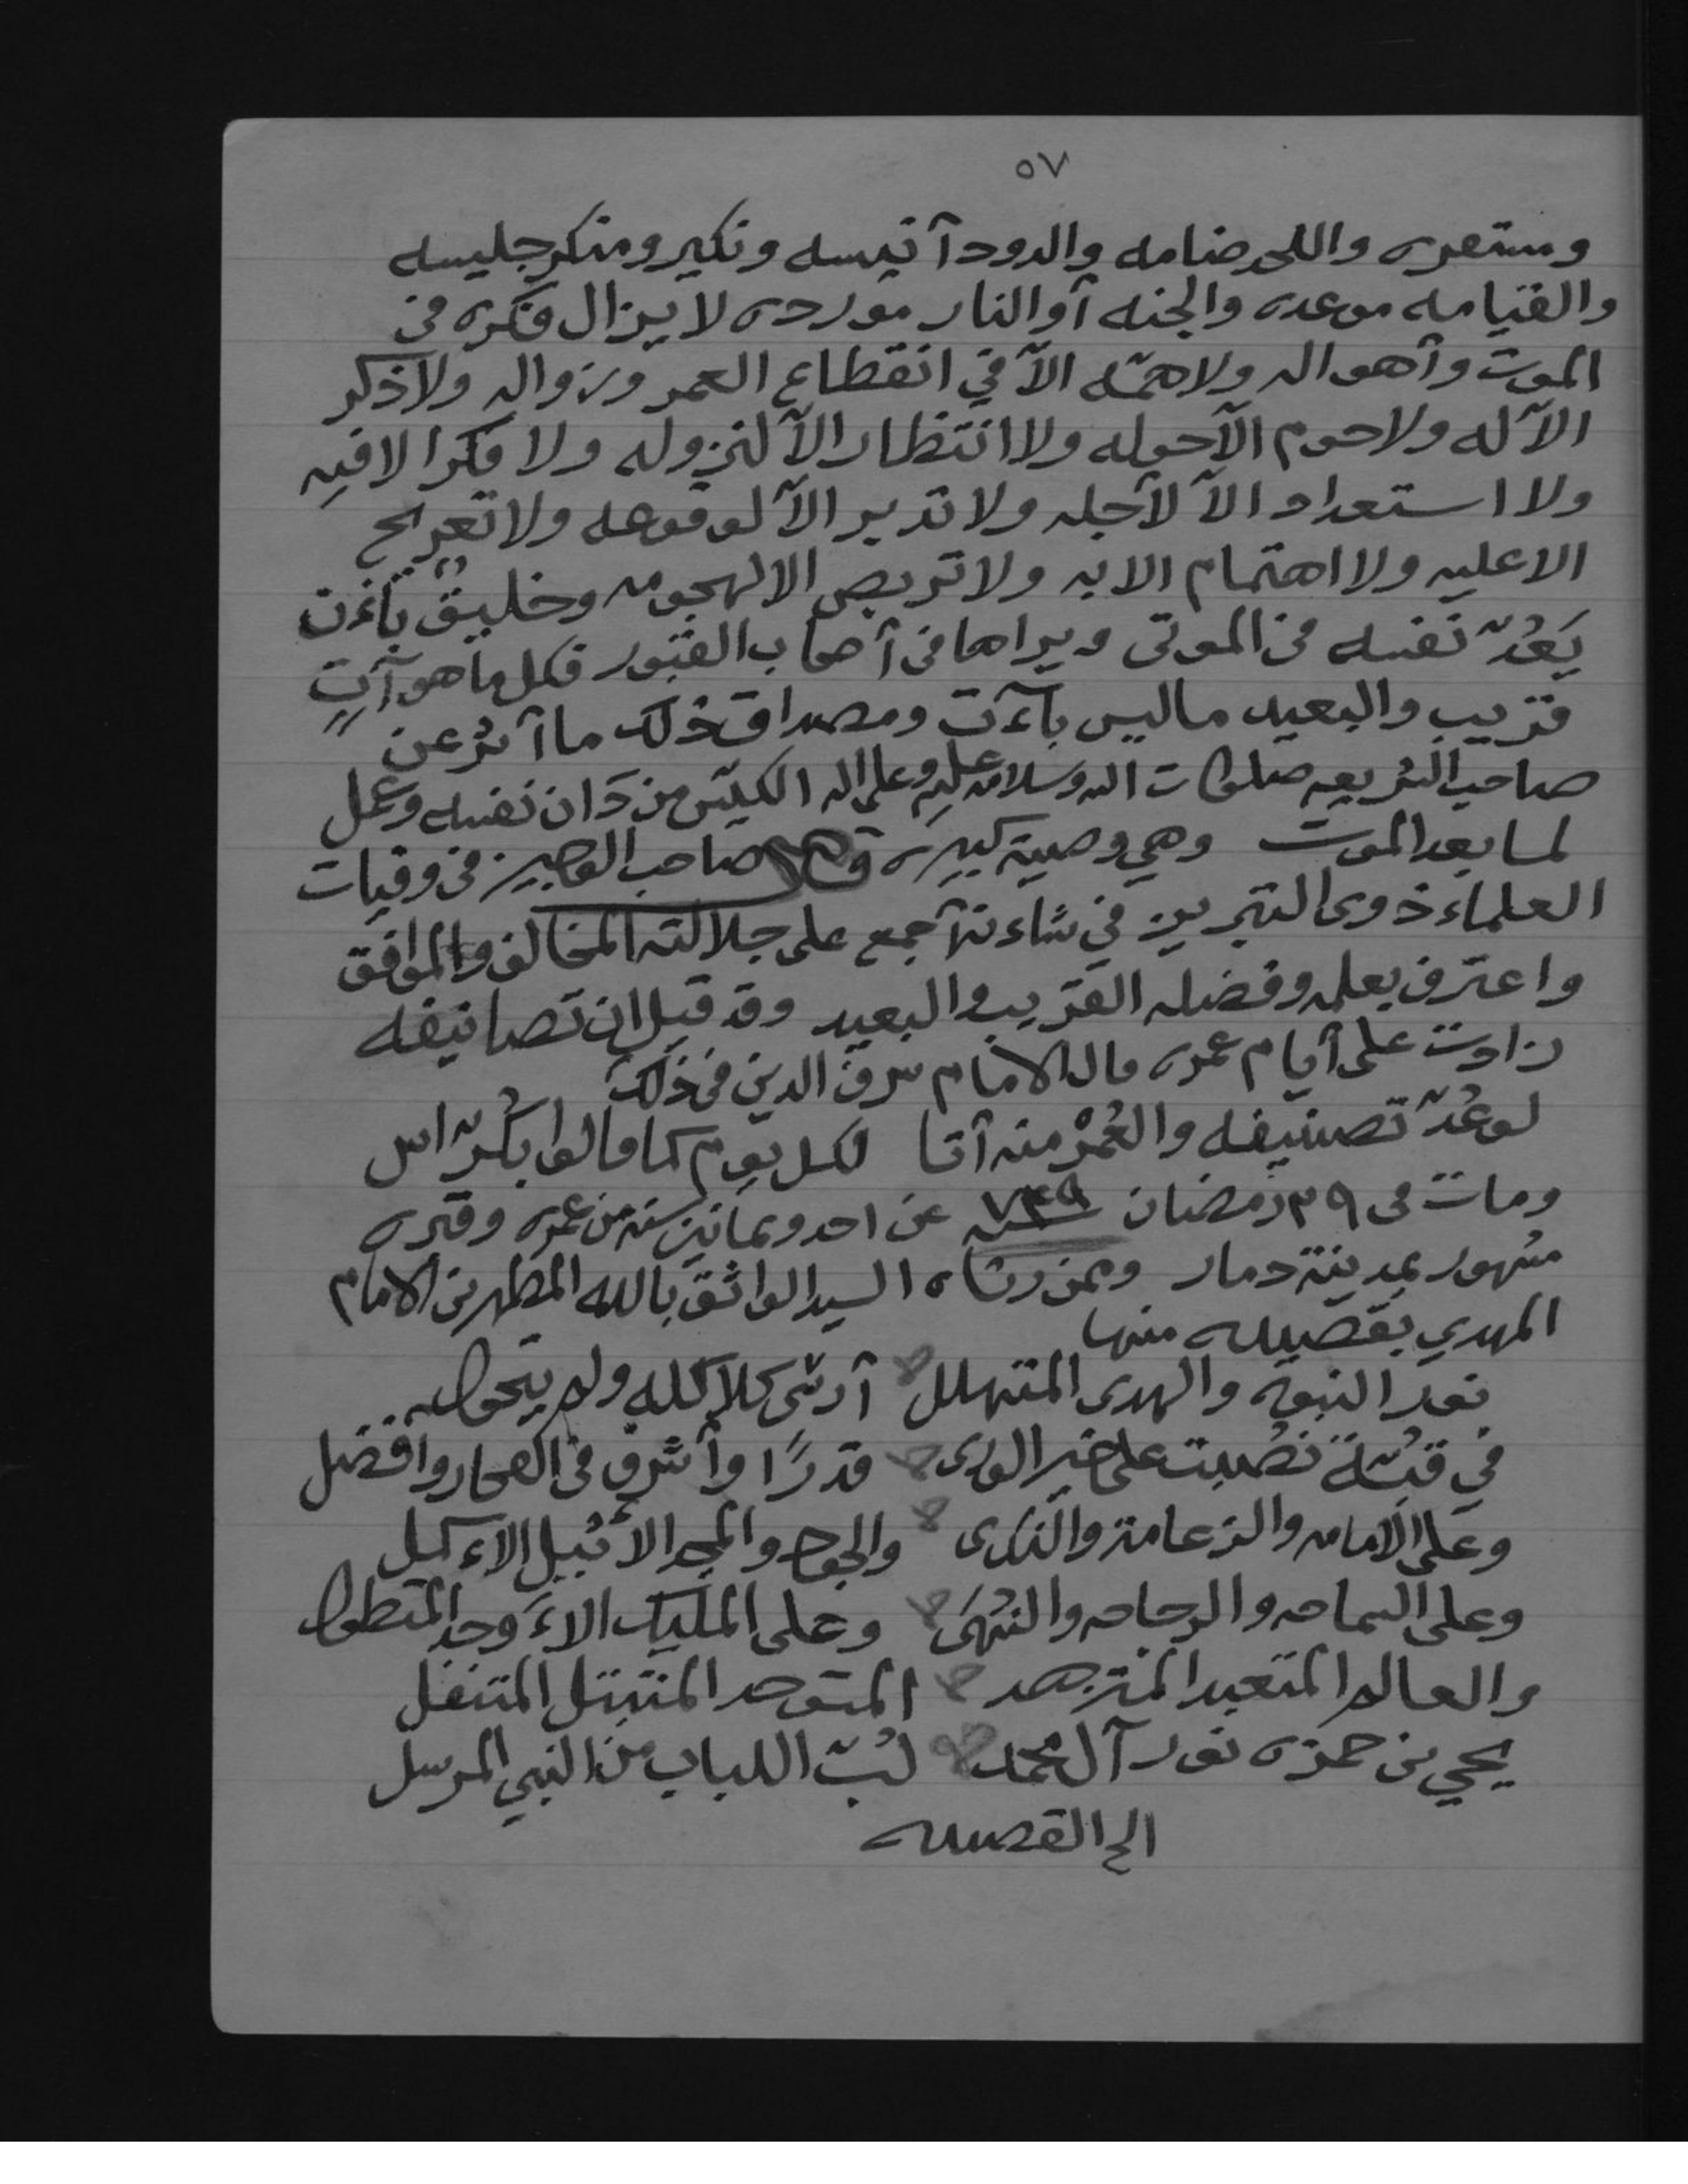 ٥٧
ومستقره واللحد ضامه والدود أنيسه ونكير ومنكر جليسه
والقيامه موعده والجنه أو النار مورده لا يزال فكره في
الموت وأهواله ولا همّه الاّ في انقطاع العمر وزواله ولا ذكر
الاّ له ولا حوم الاّ حوله ولا انتظار الاّ لنزوله ولا فكر الا فيه
ولا استعداد الاّ لأجله ولا تدبير الاّ لوقوعه ولا تعريج
الا عليه ولا اهتمام الا به ولا تربص الا لهجومه وخليقٌ بأن
يَعُدّ نفسه في الموتى ويراها في أصحاب القبور فكل ما هو آتٍ
قريب والبعيد ما ليس بآت ومصداق ذلك ما أُثر عن
صاحب الشريعه صلوات الله وسلامه عليه وعلى اله الكيّس من دَان نفسه وعمل
لما بعد الموت وهي وصية كبيره قال صاحب الوجيز في وفيات
العلماء ذوى التبريز في شاءنه أجمع على جلالته المخالف والموافق
واعترف بعلمه وفضله القريب والبعيد وقد قيل ان تصانيفه
زادت على أيام عمره قال الامام شرف الدين في ذلك
لو عُدّ تصنيفه والعُمرْ منه أتا لكل يوم كما قالوا بكُرّاس
ومات في ٢٩ رمضان سنة ٧٤٩ عن احد وثمانين سنه من عمره وقبره
مشهور بمدينة ذمار وممن رثاه السيد الواثق بالله المطهر بن الامام
المهدي بقصيده منها
نور النبوه والهدى المتهلل أرسى كلاكله ولم يتحول
في قبّة نُصبت على خير الورى قدرًا وأشرف في الفخار وافضل
وعلى الامامه والزعامة والندى والجود والمجد الأثيل الاءكمل
وعلى السماحه والرجاحه والنُهَى وعلى المليك الاءَوحد المتطول
والعالم المتعبد المتزهد المتوحد المتبتل المتنفل
يحيى بن حمزه نور آل محمد لبّ اللباب من النبي المرسل
الخ القصيده